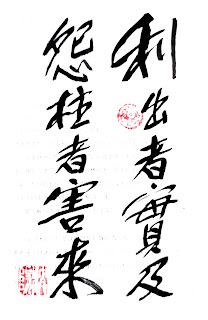 利出者實及
怨往者害來